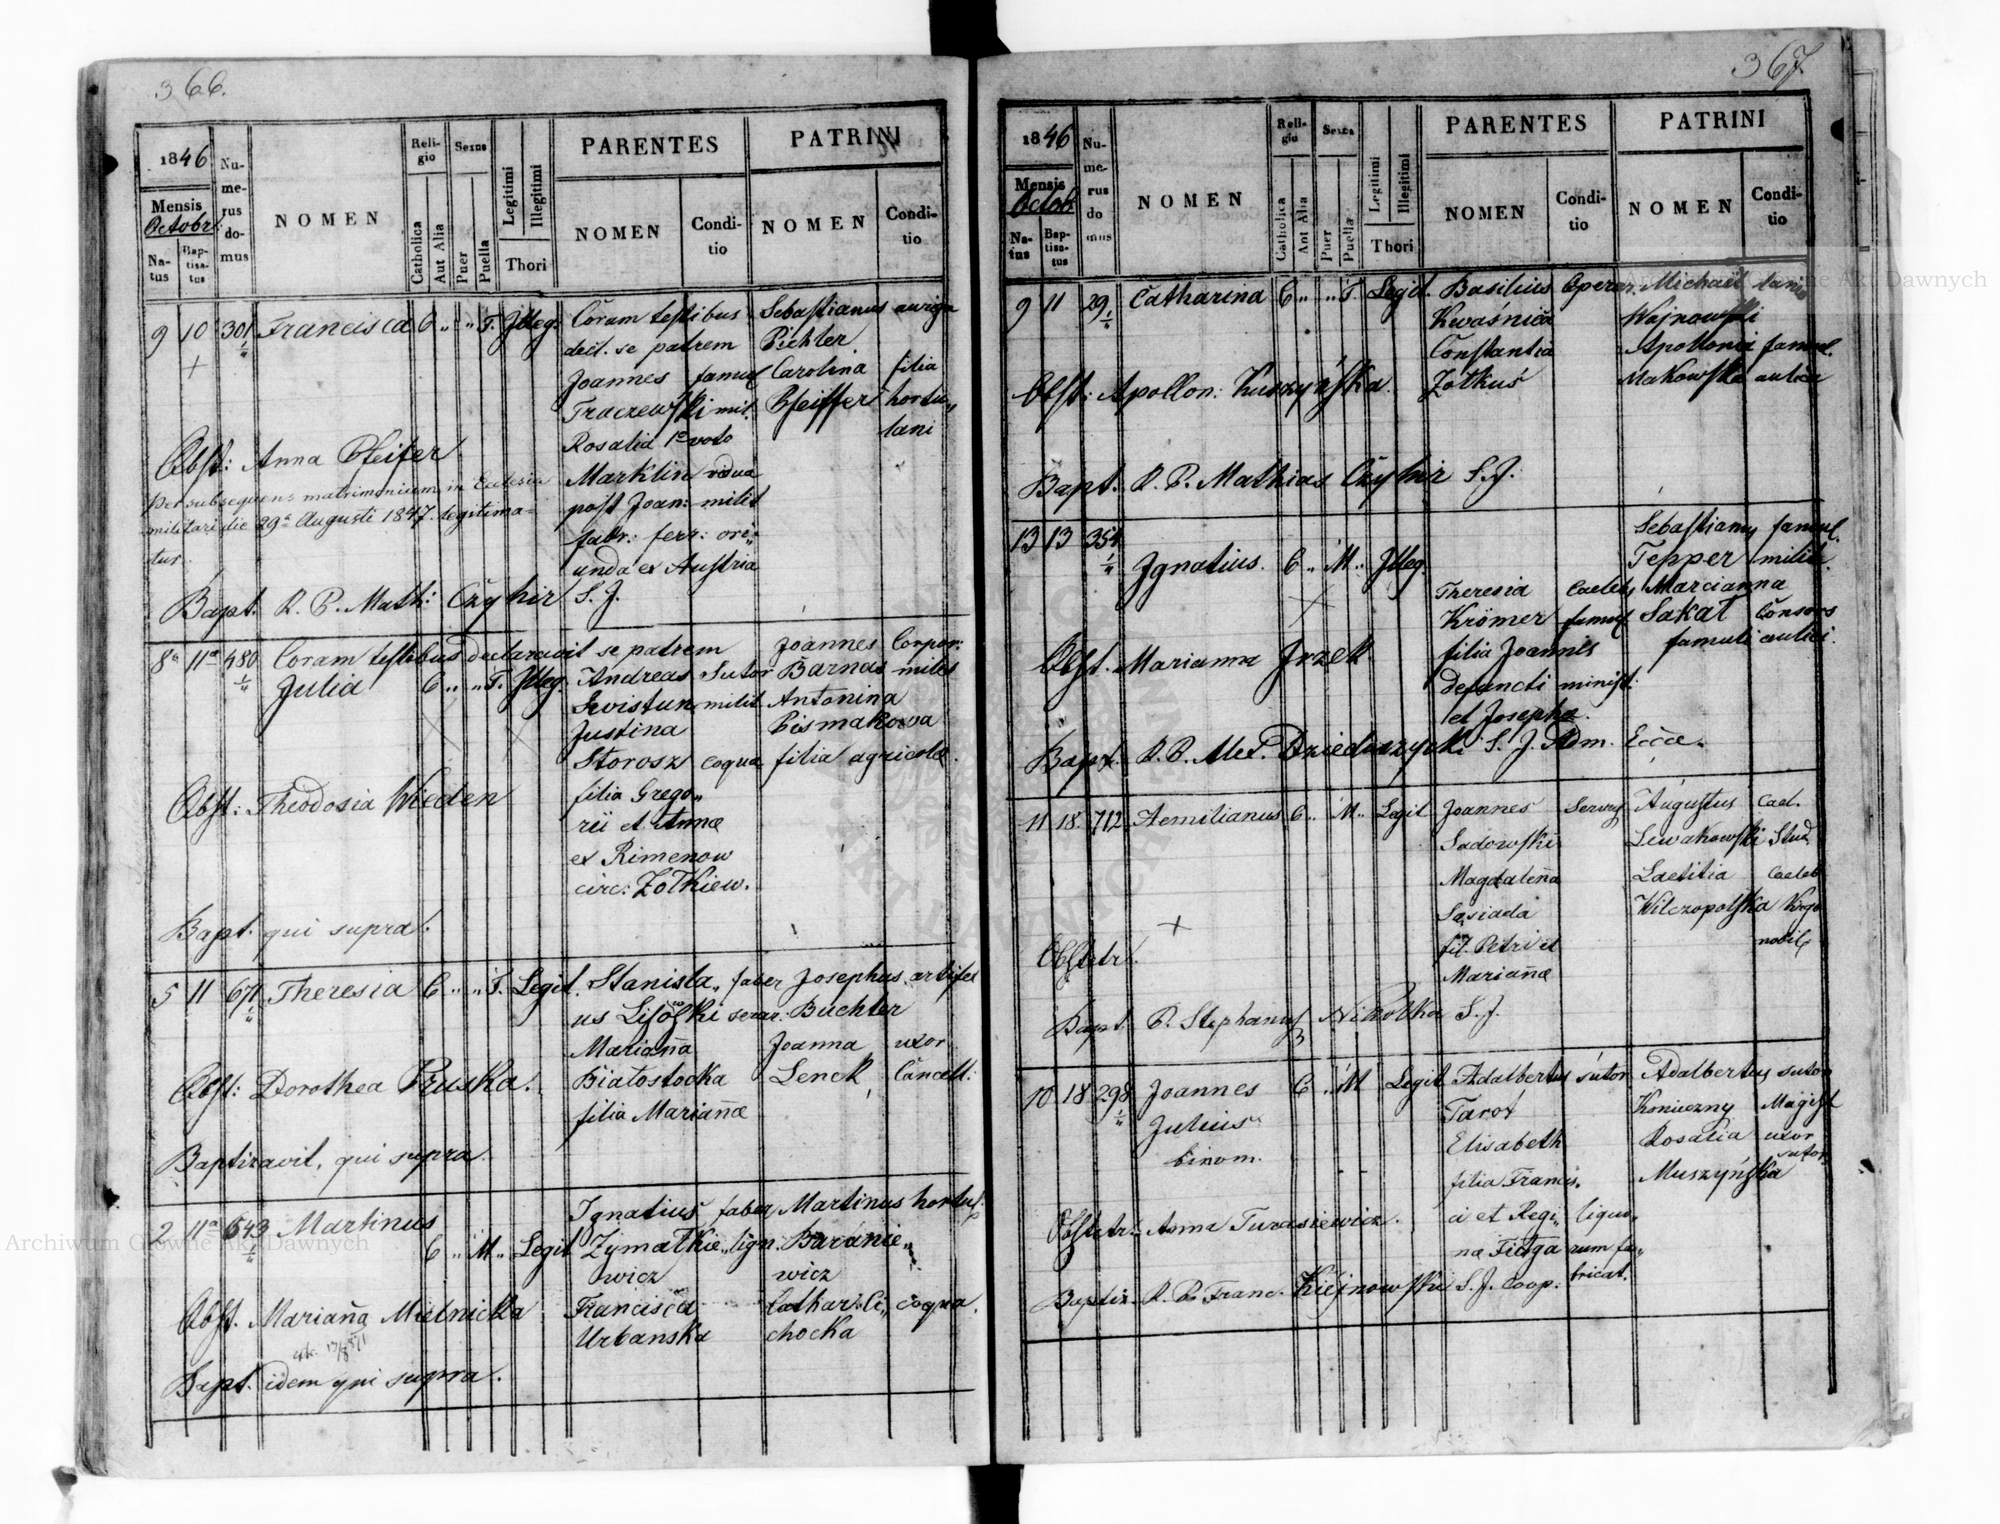 366.
1846
Mensis
Octobr.
Natus
Baptisatus
Numerus domus
NOMEN
Religio
Catholica
Aut Alia
Sexus
Puer
Puella
Legitimi
Illegitimi
Thori
PARENTES
NOMEN
Conditio
PATRINI
NOMEN
Conditio
9 10 301 1/4 Francisca C " " F. Illeg. Coram testibus Sebastianus auriga
decl. se patrem Pichter
Joannes famul Carolina filia
Traczewski mil. Pfeiffer hortu„
Rosalia 1º voto lani
Obst: Anna Pfeifer Marklin vidua
Per subsequens matrimonium in Ecclesia post Joan: milit
militari die 29ª Augusti 1847. legitima= fabr: ferr: ori„
tus unda ex Austria
Bapt. R. P. Math: Czyhir S. J.
8ª 11ª 480 1/4 Coram testibus declaravit se patrem Joannes Corpor:
Julia C " " F. Illeg. Andreas Sutor Barnas miles
Kwistun milit Antonina
Justina Pismakowa
Storosz coqua filia agricolæ
Obst: Theodosia Wieden filia Grego„
rii et Annæ
ex Rimenow
circ: Zołkiew.
Bapt. qui supra.
5 11 671 1/4 Theresia C " " F. Legit. Stanisla„ faber Josephus artifex
us serar: Buchter
Marianna Joanna uxor
Obst: Dorothea Pruska. Białostocka Lenck Cancell:
filia Mariannæ
Baptizavit, qui supra.
2 11ª 643 1/4 Martinus Ignatius faber Martinus hortul.
C " M " Legit Zymałkie„ lign. Baranie„
wicz wicz
Obst. Marianna Mielnicka Francisca Cathar: Ci„ coqua.
Urbanska chocka
Bapt. idem qui supra.
367.
1846
Mensis
Octob
Natus
Baptisatus
Numerus domus
NOMEN
Religio
Catholica
Aut Alia
Sexus
Puer
Puella
Legitimi
Illegitimi
Thori
PARENTES
NOMEN
Conditio
PATRINI
NOMEN
Conditio
9 11 29 1/4 Catharina C " " F. Legit. Basilius Operar. Michael lanio
Kwasnica Wojnowski
Constantia Apollonia famul.
Obst: Apollon: Kuszyńska. Zołkuś Makowska aulica
Bapt. R. P. Mathias Czyhir S. J.
13 13 354 1/4 Sebastianus famul.
Ignatius. C " M " Illeg. Tepper milit.
Theresia Caelebs Marcianna
Krömer famul Sakał Consors
Obst. Marianna Irzek filia Joannis famuli aulici
defuncti minist:
et Josephæ.
Bapt. R. P. Dzieduszycki S. J. Adm. Eccæ.
11 18 712 Aemilianus C " M " Legit Joannes Servus Augustus Cael.
Sadowski Lewakowski Stud.
Magdalena Laetitia Caeleb
Sąsiada Wilczopolska Virgo
fil. Petri et nobil
Obstetr. Mariannæ
Bapt. P. Stephanus Nikotka S. J.
10 18 298 1/4 Joannes C " M Legit Adalbertus sutor Adalbertus sutor
Julius Tarot Konieczny Magist
binom. Elisabeth Rosalia uxor
filia Francis„ Muszyńska sutor.
Obstetr. Anna Turasiewicz. ci et Regi„ liquo„
na rum fa„
Baptiz. R. P. Franc. Kiejnowski S. J. Coop. bricat.
Archiwum Główne Akt Dawnych
Archiwum Główne Akt Dawnych